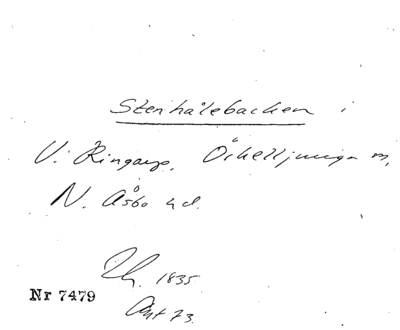 Stenhålebacken i
V. Ringarp, Örkelljunga sn,
N. Åsbo hd.
Lh. 1835
Nr 7479
Ant 73.